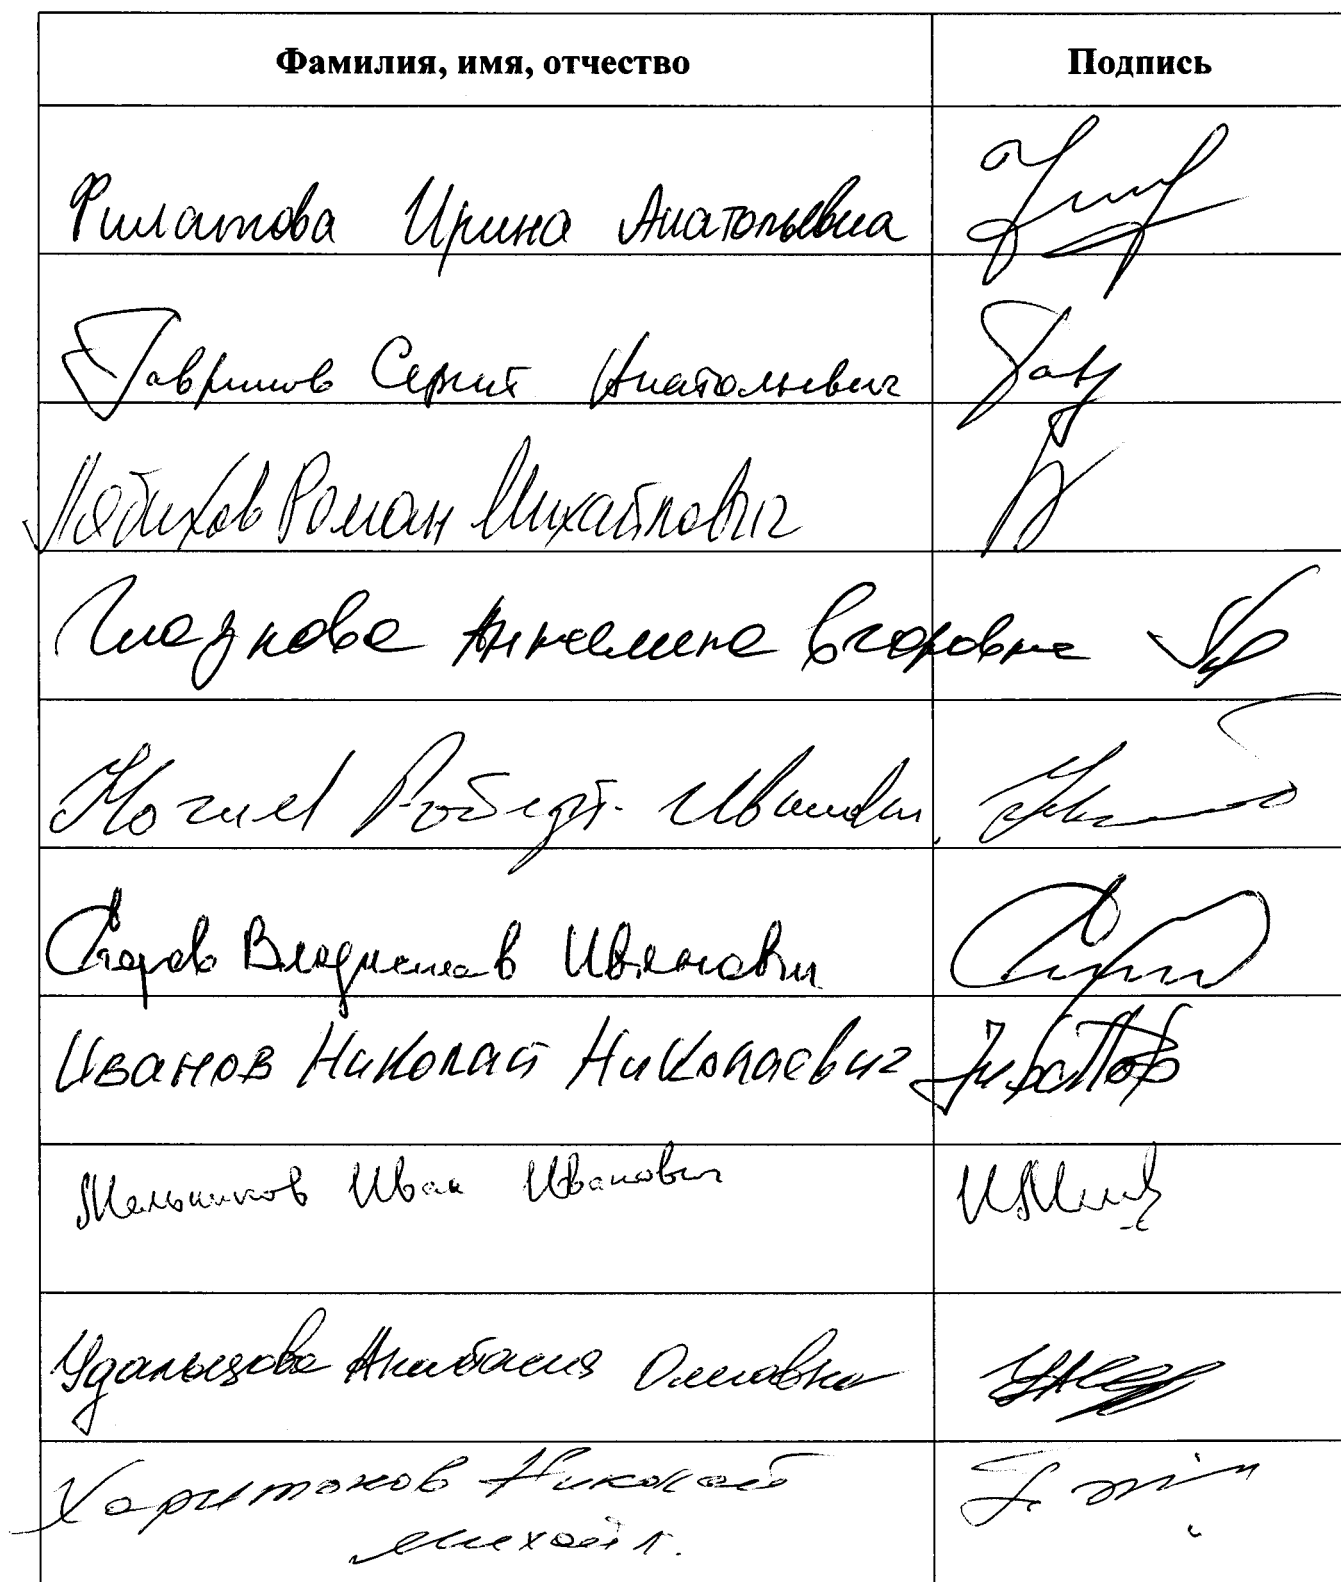 Фамилия, имя, отчество Подпись
Филатова Ирина Анатольевна
Гаврилов Сергей Анатольевич
Лябихов Роман Михайлович
Глазкова Анжелика Егоровна
Кочиев Роберт Иванович
Егоров Владислав Иванович
Иванов Николай Николаевич
Мельников Иван Иванович
Удальцова Анастасия Олеговна
Харитонов Николай
Михайл.